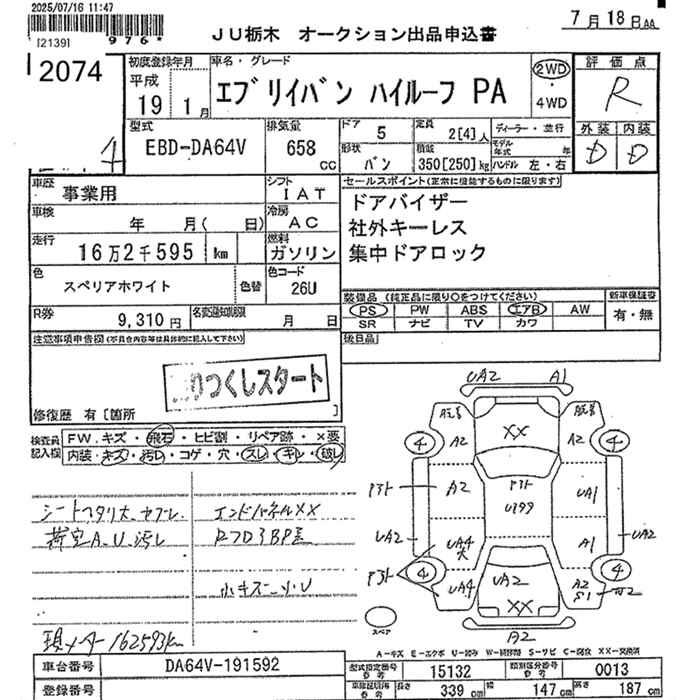 2025/07/16 11:47
[2139]
976*
JU栃木 オークション出品申込書
7月18日
2074
初度登録年月
平成
19 1月
車名・グレード
エブリイバン ハイルーフ PA
2WD
・
4WD
評価点
R
外装 内装
D D
型式
EBD-DA64V
排気量
658 cc
ドア
5
定員
2[4]人
ディーラー・並行
形状
バン
積載
350[250]kg
モデル年式 年
ハンドル 左・右
4
車歴
事業用
シフト
IAT
セールスポイント(正常に機能するものに限ります)
ドアバイザー
社外キーレス
集中ドアロック
車検
年 月( 日)
冷房
AC
走行
16万2千595 km
燃料
ガソリン
色
スペリアホワイト
色替
色コード
26U
装備品(純正品に限り○をつけてください)
PS PW ABS エアB AW
SR ナビ TV カワ
新車保証書
有・無
R券
9,310円
名変通知期限
月 日
後日品
注意事項申告欄(不具合内容等は具体的に記入して下さい)
りつくしスタート
修復歴 有[箇所 ]
検査員記入欄
FW.キズ・飛石・ヒビ割・リペア跡・×要
内装・キズ・汚レ・コゲ・穴・スレ・キレ・破レ
シートヘタリ大、ヤブレ
荷室A.U.汚レ
エンドパネルXX
小キズ・小U
現メーター162593km
UA2 A1
A2 XX A2
4 4
P3ト A2 P3ト UA1
U199
UA2 UA4 A1 UA2
P3ト 4 UA4 UA2 4 A2
XX A2
A2
スペア
A-キズ E-エクボ U-凹み W-補修跡 S-サビ C-腐食 XX-交換済
車台番号
DA64V-191592
登録番号
型式指定番号
15132
類別区分番号
0013
長さ 339 cm
幅 147 cm
高さ 187 cm